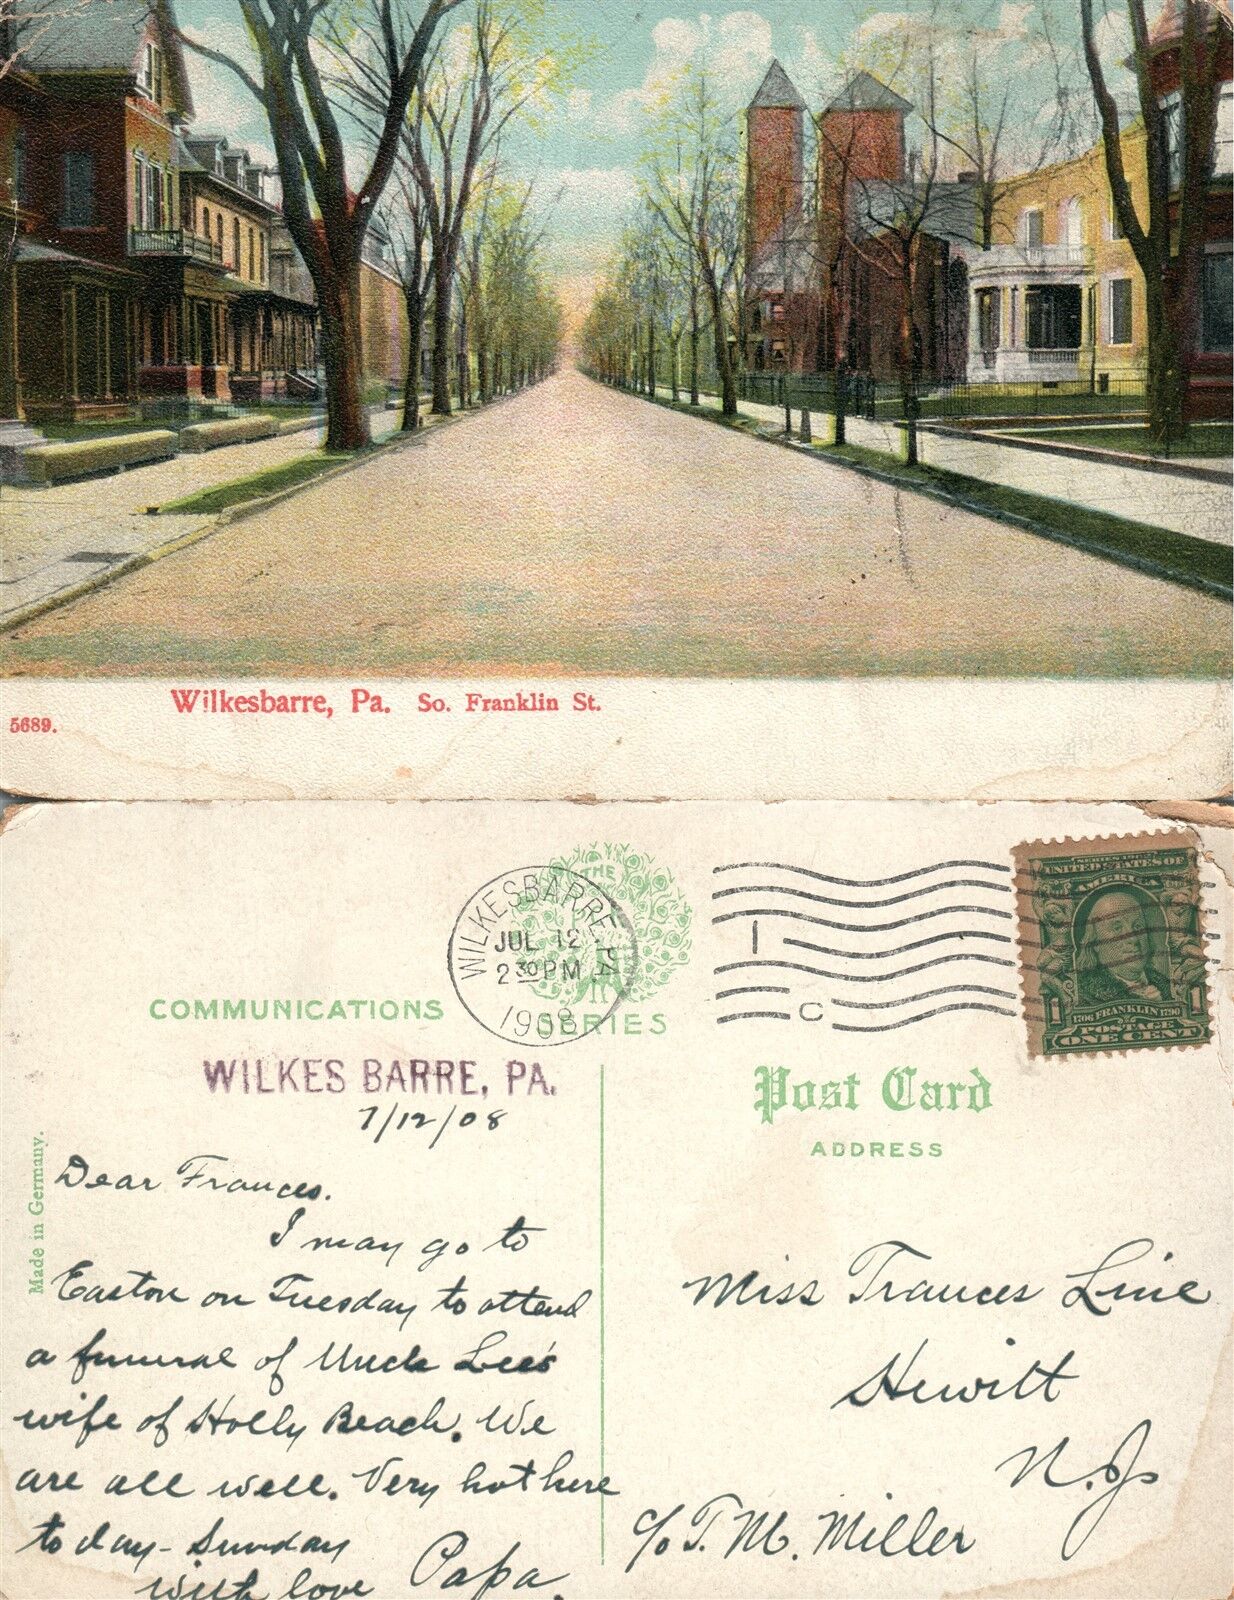 Wilkesbarre, Pa. So. Franklin St.
5689.
THE
SERIES
WILKESBARRE, PA.
JUL 12
2 30 PM
1908
1
C
UNITED STATES OF
AMERICA
1
1706 FRANKLIN 1790
POSTAGE
ONE CENT
COMMUNICATIONS
WILKES BARRE, PA.
7/12/08
Made in Germany.
Dear Frances.
I may go to
Easton on Tuesday to attend
a funeral of Uncle Lee's
wife of Holly Beach. We
are all well. Very hot here
to day - Sunday
with love Papa.
Post Card
ADDRESS
Miss Frances Line
Hewitt
N.J.
c/o T. M. Miller